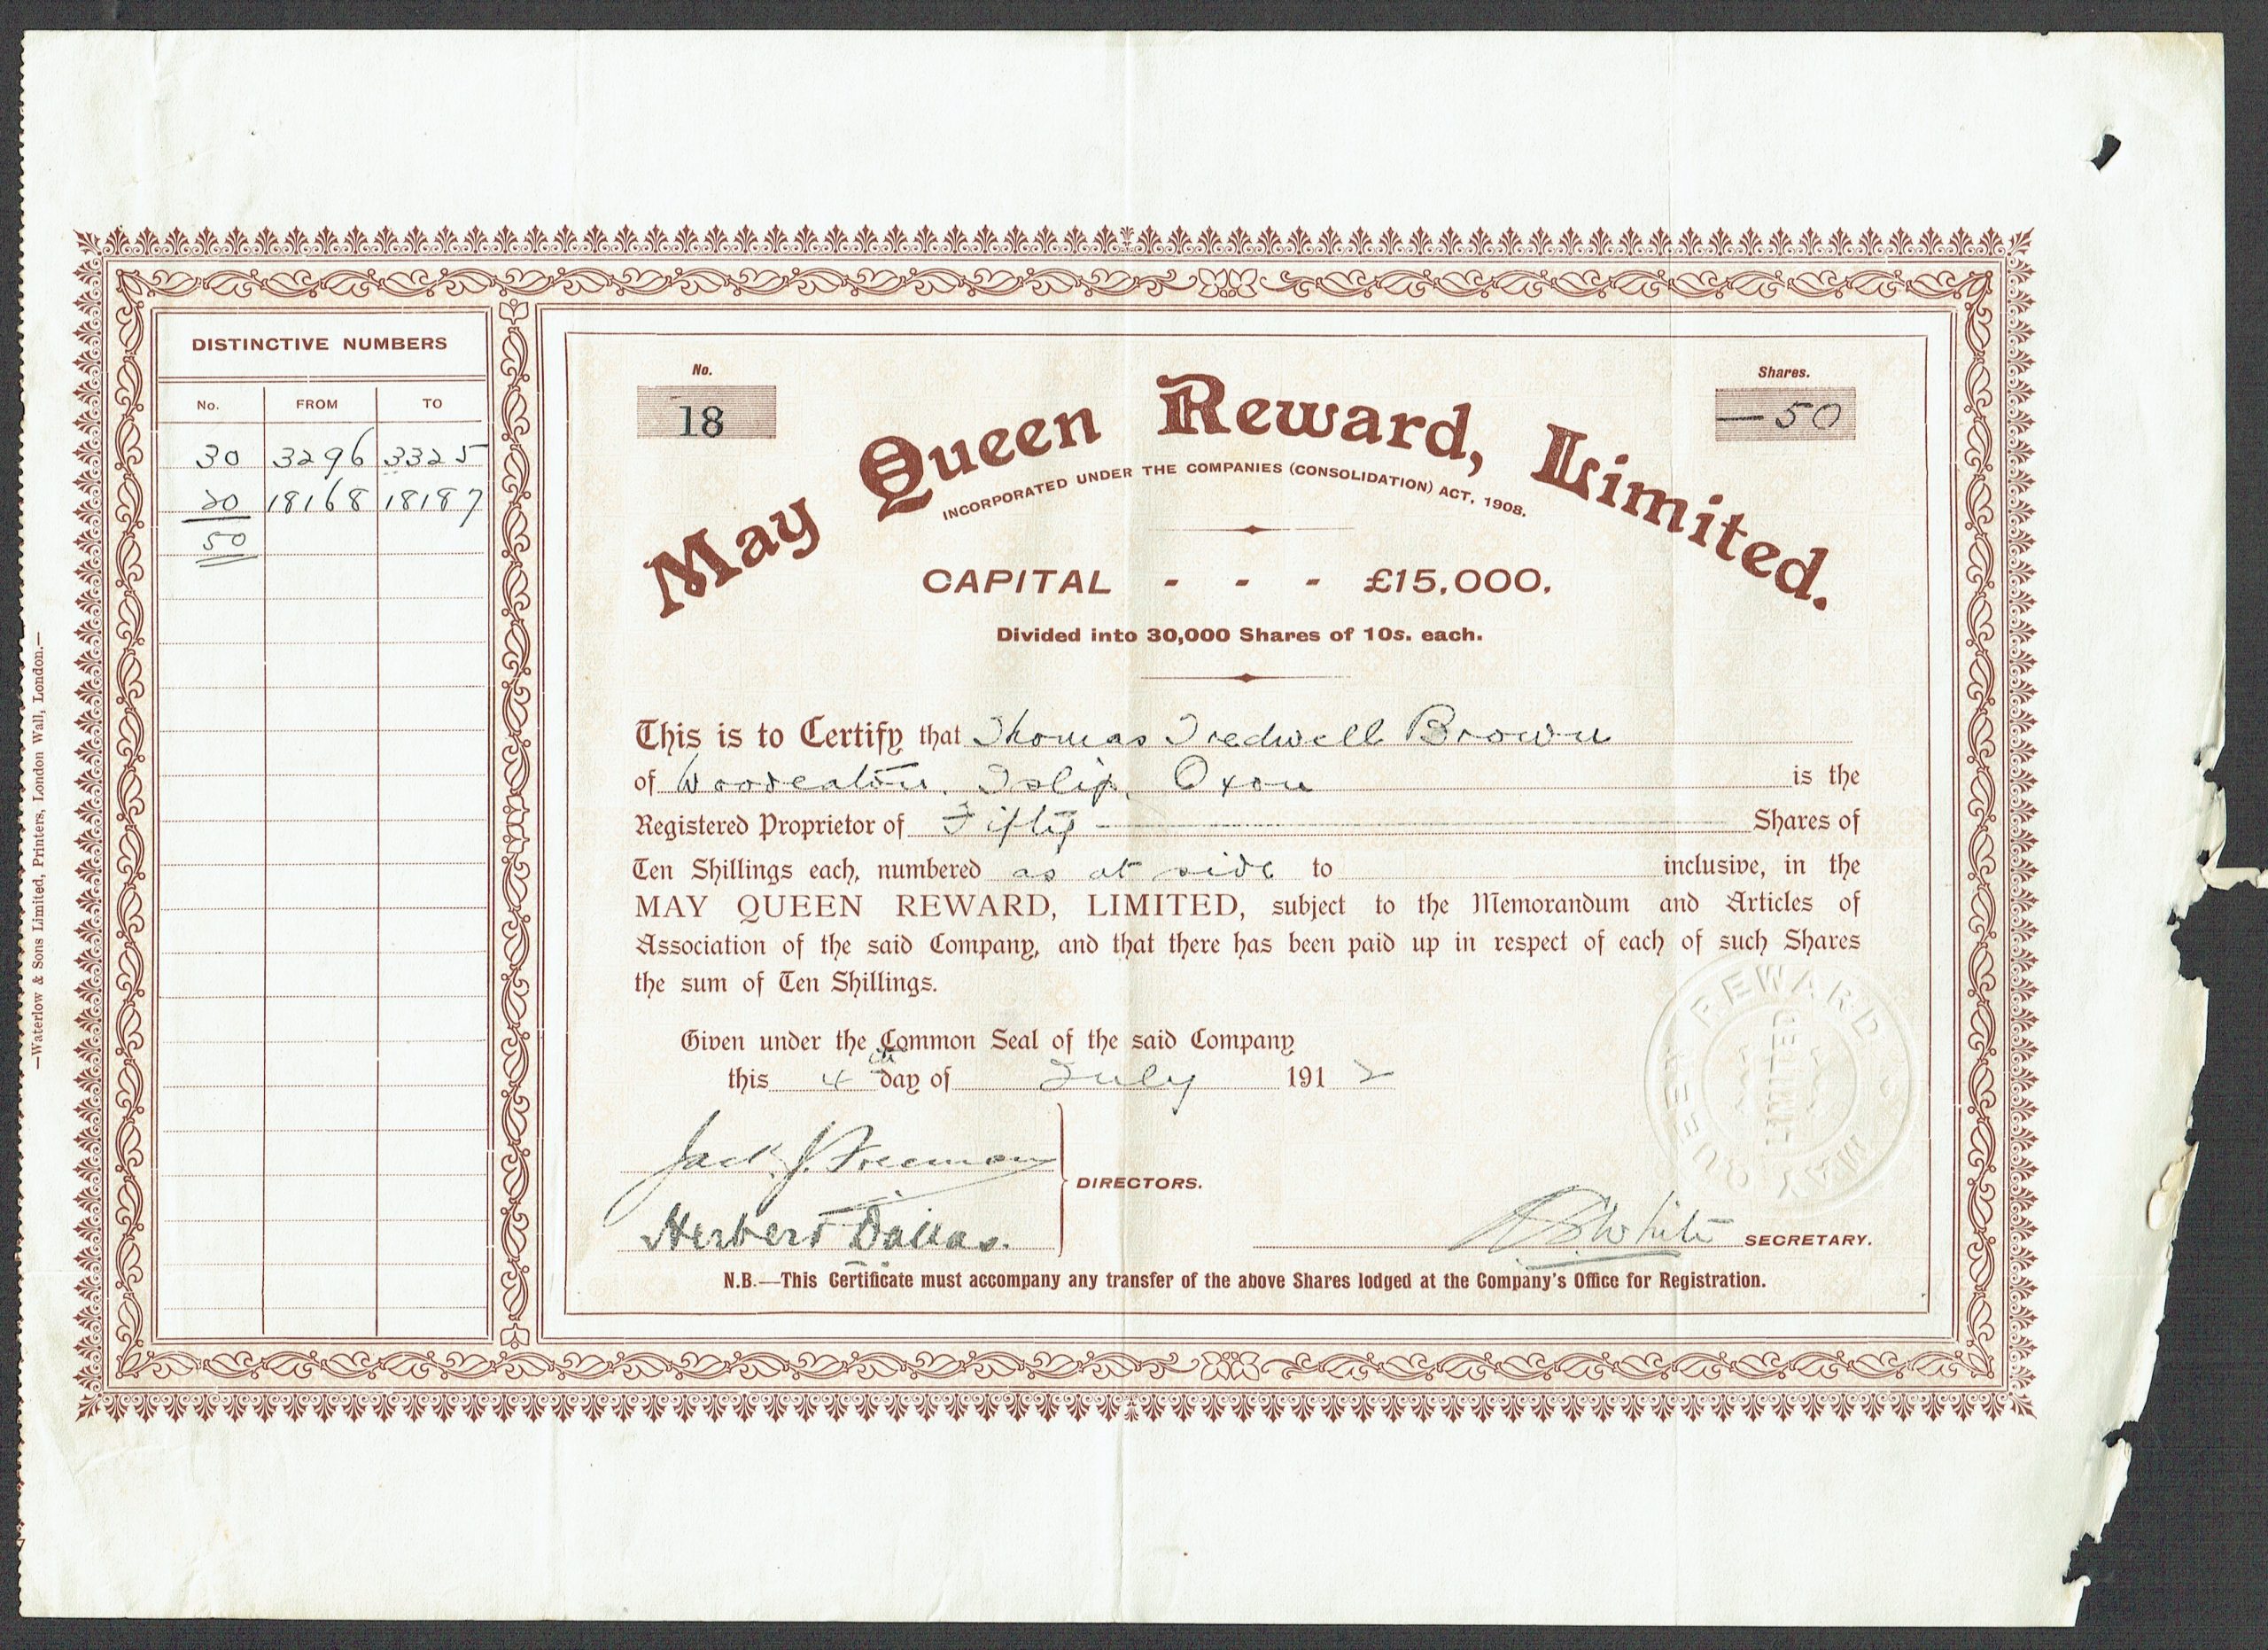 DISTINCTIVE NUMBERS
No. FROM TO
30 3296 3325
20 18168 18187
50
—Waterlow & Sons Limited, Printers, London Wall, London.—
No.
18
Shares.
— 50
May Queen Reward, Limited.
INCORPORATED UNDER THE COMPANIES (CONSOLIDATION) ACT, 1908.
CAPITAL - - - £15,000.
Divided into 30,000 Shares of 10s. each.
This is to Certify that Thomas Tredwell Brown
of Woodeaton, Islip, Oxon is the
Registered Proprietor of Fifty Shares of
Ten Shillings each, numbered as at side to inclusive, in the
MAY QUEEN REWARD, LIMITED, subject to the Memorandum and Articles of
Association of the said Company, and that there has been paid up in respect of each of such Shares
the sum of Ten Shillings.
Given under the Common Seal of the said Company
this 4th day of July 1912
Jack J. Freeman
Herbert Dallas.
DIRECTORS.
MAY QUEEN REWARD
LIMITED
White SECRETARY.
N.B.—This Certificate must accompany any transfer of the above Shares lodged at the Company's Office for Registration.